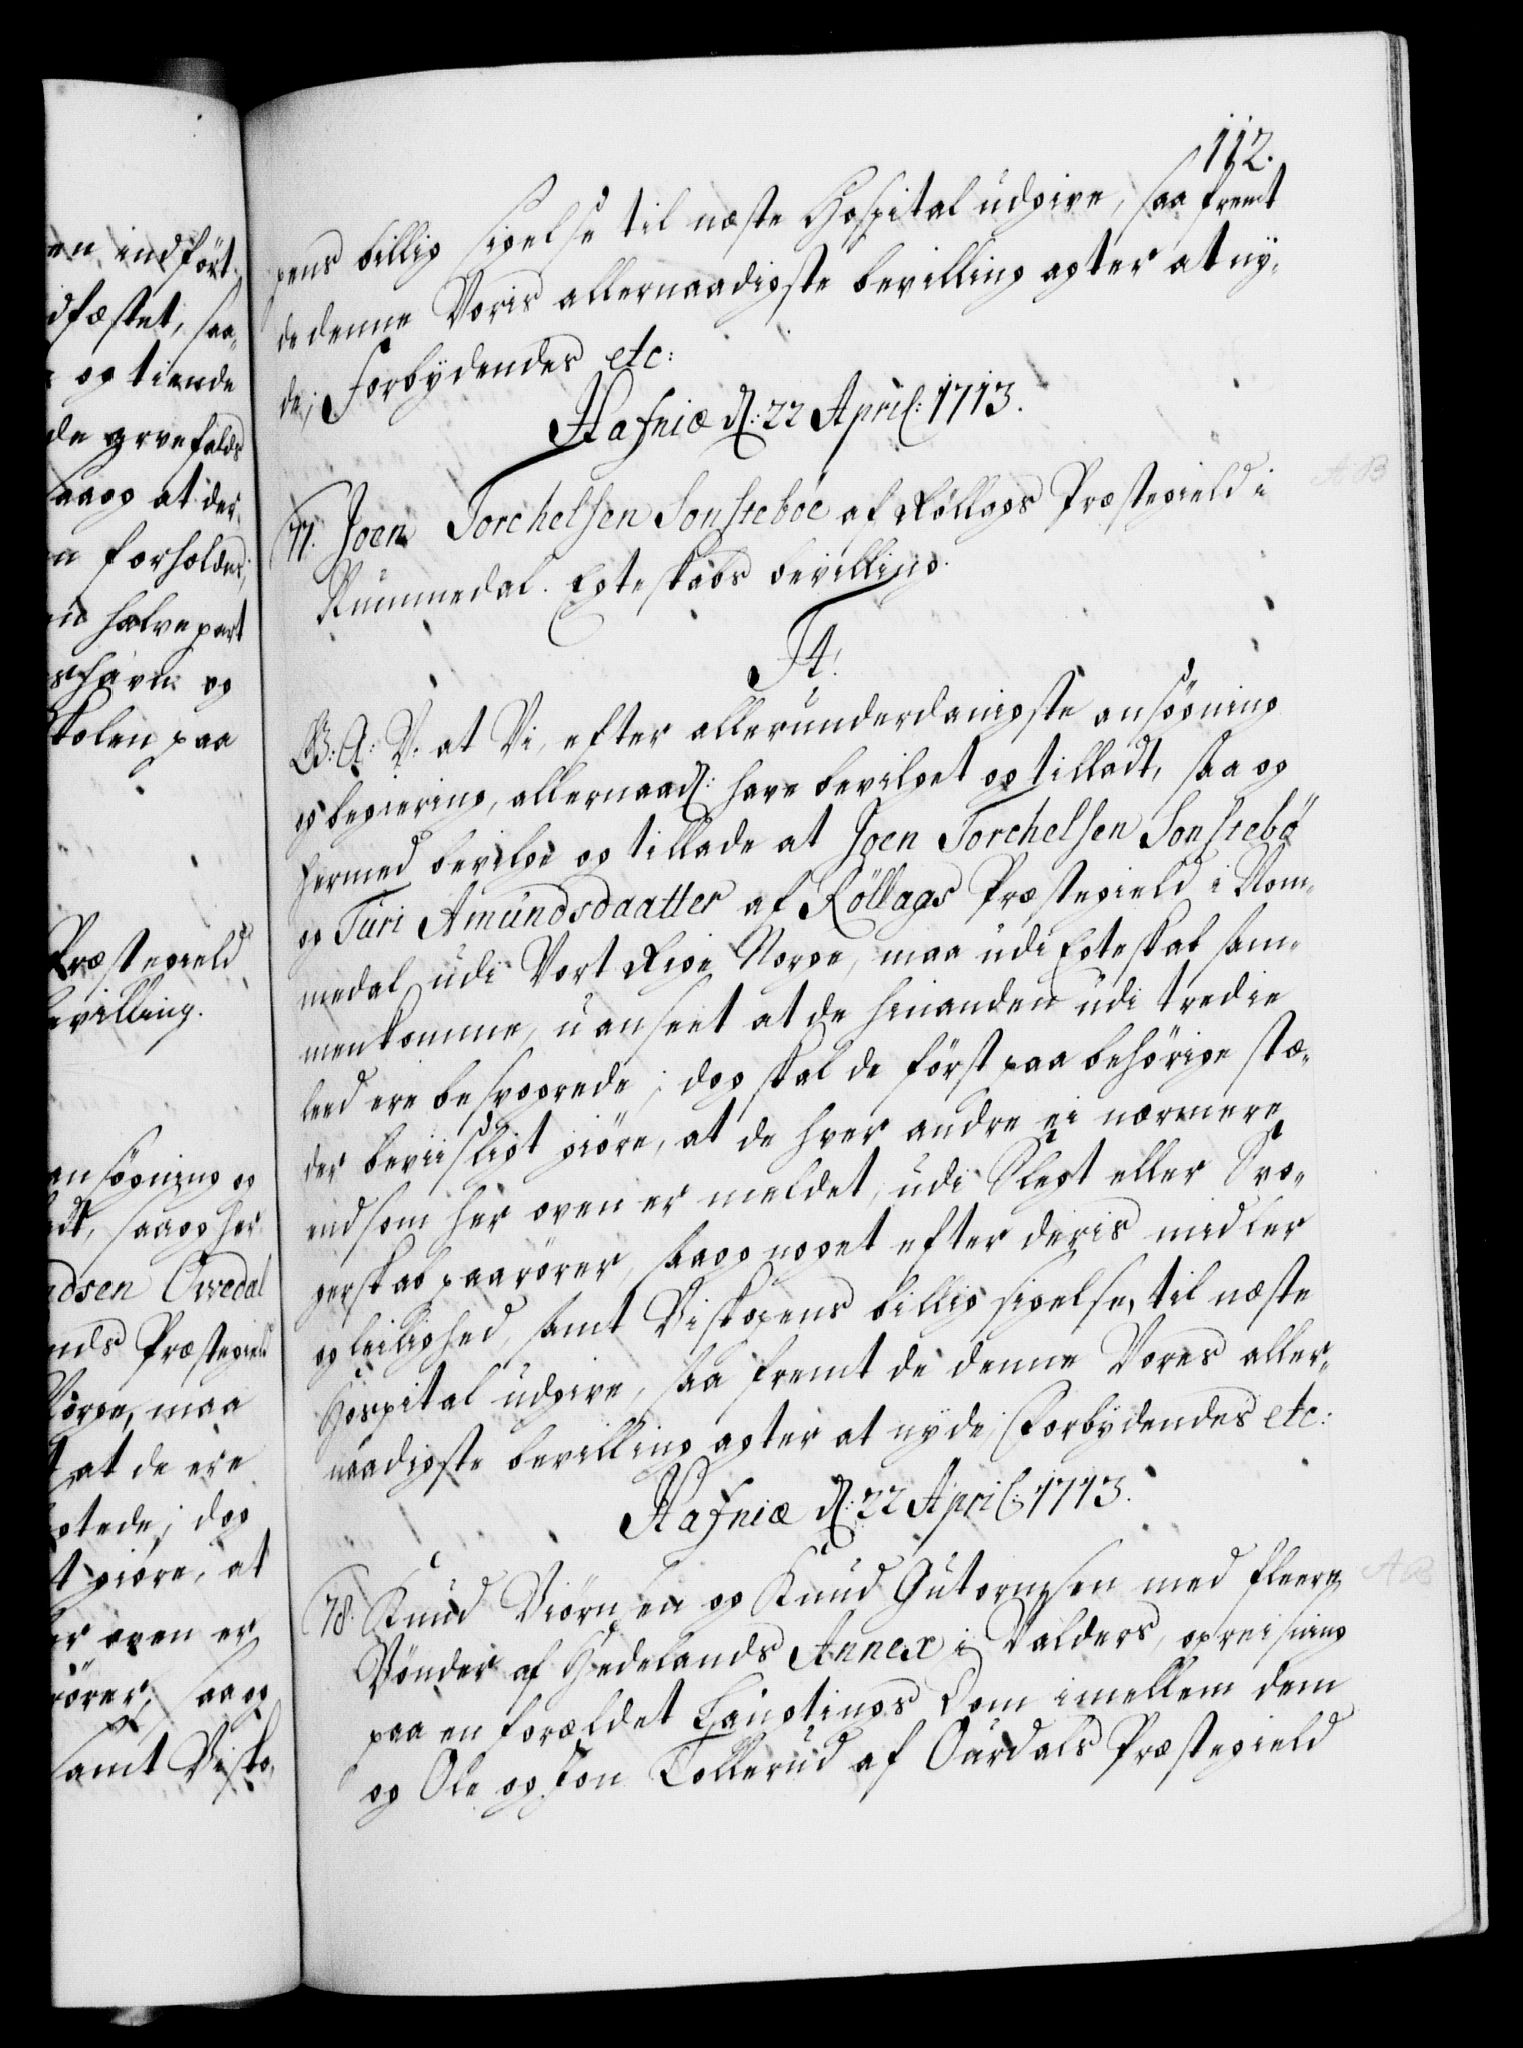 112.
pens billig sigelse til næste Hospital udgive, saa fremt
de denne Voris allernaadigste bevilling agter at ny-
de; Forbydendes etc:
Hafniæ d: 22 April: 1713.
77. Joen Torchelsen Sonstebøe af Røllags Præstegield i
Nummedal. Egteskabs bevilling.
F4!
G: A: V. at Vi, efter allerunderdanigste ansøgning
og begiering, allernaad: have bevilget og tilladt, saa og
hermed bevilge og tillade at Joen Torchelsen Sonstebø
og Turi Amundsdaatter af Røllags Præstegield i Nom-
medal udi Vort Rige Norge, maa udi Egteskab sam-
menkomme, uanseet at de hinanden udi tredie
leed ere besvogrede; dog skal de først paa behørige stæ-
der beviisligt giøre, at de hver andre ei nærmere
end som her oven er meldet, udi Slegt eller Svo-
gerskab paarører, saa og noget efter deris midler
og leilighed, samt Viskopens billig sigelse, til næste
Hospital udgive, saa fremt de denne Vores aller-
naadigste bevilling agter at nyde, Forbydendes etc:
Hafniæ d: 22 April: 1713.
78. Knud Viørn en og Knud Gutormsen med fleere
Bønder af Hedelands Annex i Valders, opreisning
paa en forældet Laugtings Dom imellem dem
og Ole og Jon Tollerud af Ourdals Præstegield
en indført
dfæstet, saa-
og tiende
de grvefolds
saa og at der
forholdes,
halve part
shavn og
skolen paa
Præstegield
bevilling.
ansøgning og
adt, saa og her
ndsen Ovvedal
nds Præstegield
Norge, maa
at de ere
gtede; dog
t giøre, at
er oven er
rører, saa og
samt Visko-